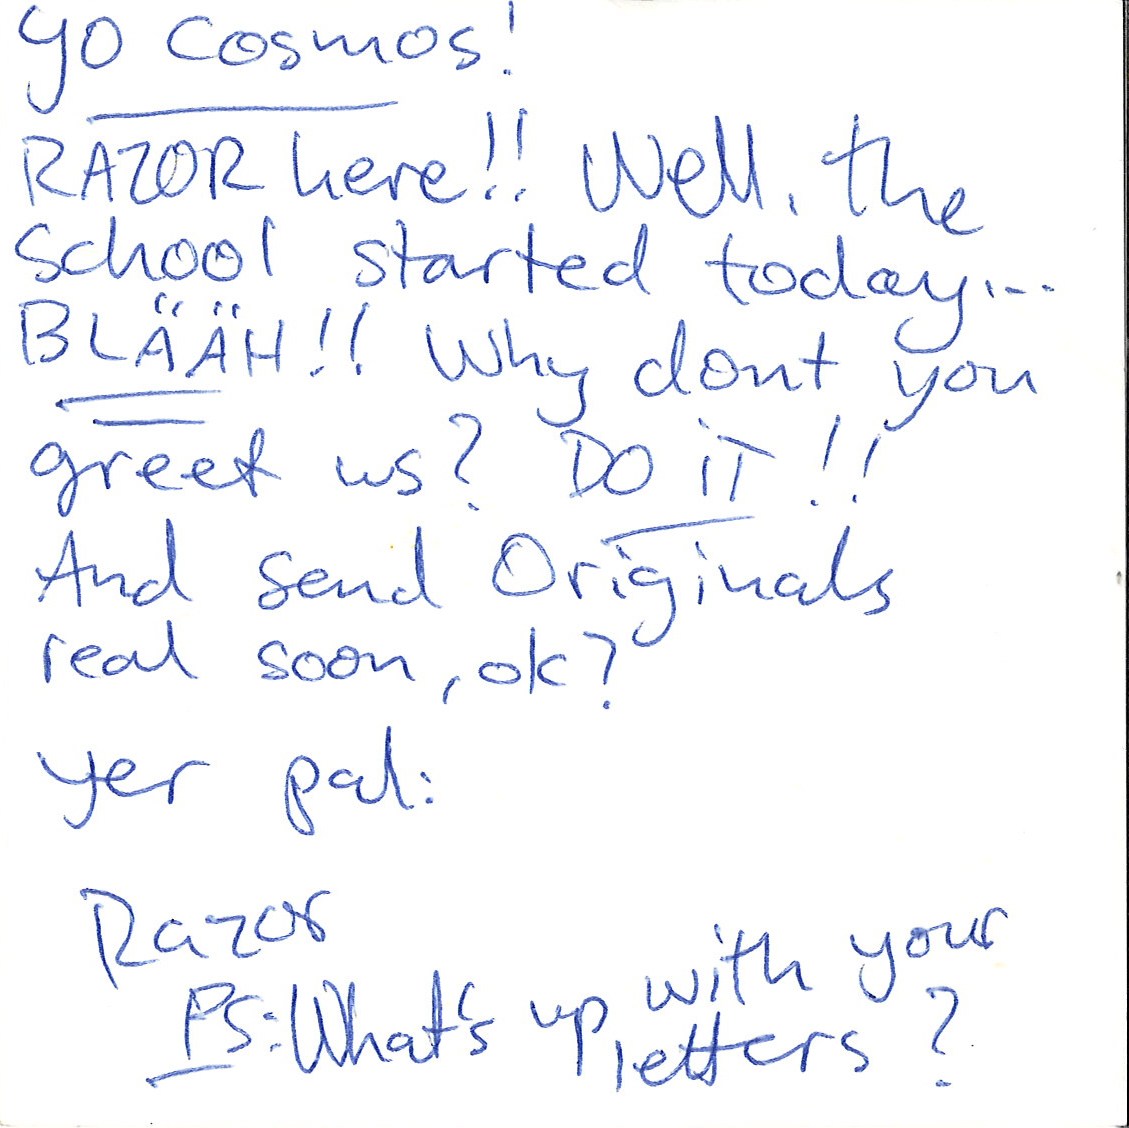 yo cosmos!
RAZOR here!! Well, the
school started today...
BLÄÄH!! Why dont you
greet us? DO iT!!
And send Originals
real soon, ok?
yer pal:
Razor
PS: What's up with your
letters?